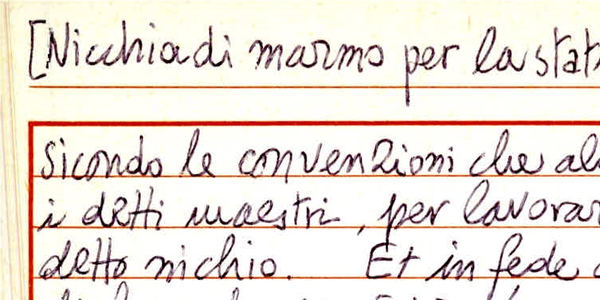 [Nicchia di marmo per la stat
Sicondo le convenzioni che al
i detti maestri, per lavorar
detto nichio. Et in fede